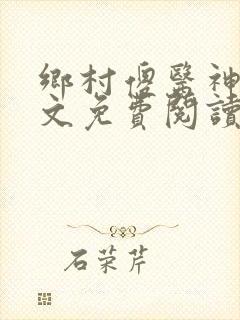 鄉村僾醫神
文免費閱讀
石荣芹